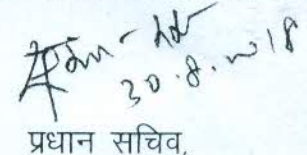 30.8.2018
प्रधान सचिव,